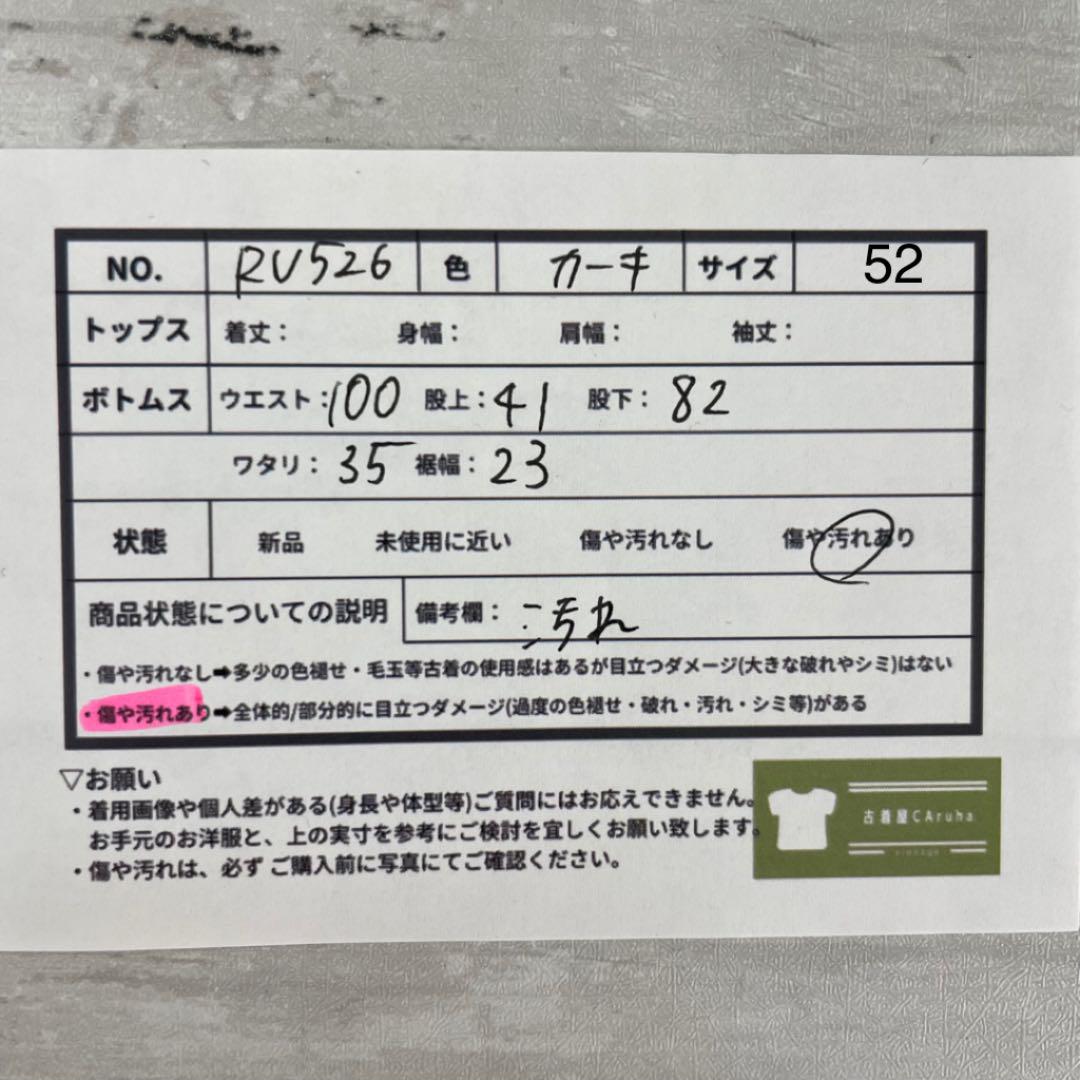 NO. RU526 色 カーキ サイズ 52
トップス 着丈： 身幅： 肩幅： 袖丈：
ボトムス ウエスト：100 股上：41 股下：82
ワタリ：35 裾幅：23
状態 新品 未使用に近い 傷や汚れなし 傷や汚れあり
商品状態についての説明 備考欄： 汚れ
・傷や汚れなし➡多少の色褪せ・毛玉等古着の使用感はあるが目立つダメージ(大きな破れやシミ)はない
・傷や汚れあり➡全体的/部分的に目立つダメージ(過度の色褪せ・破れ・汚れ・シミ等)がある
▽お願い
・着用画像や個人差がある(身長や体型等)ご質問にはお応えできません。
お手元のお洋服と、上の実寸を参考にご検討を宜しくお願い致します。
・傷や汚れは、必ず ご購入前に写真にてご確認ください。
古着屋CAruha
vintage